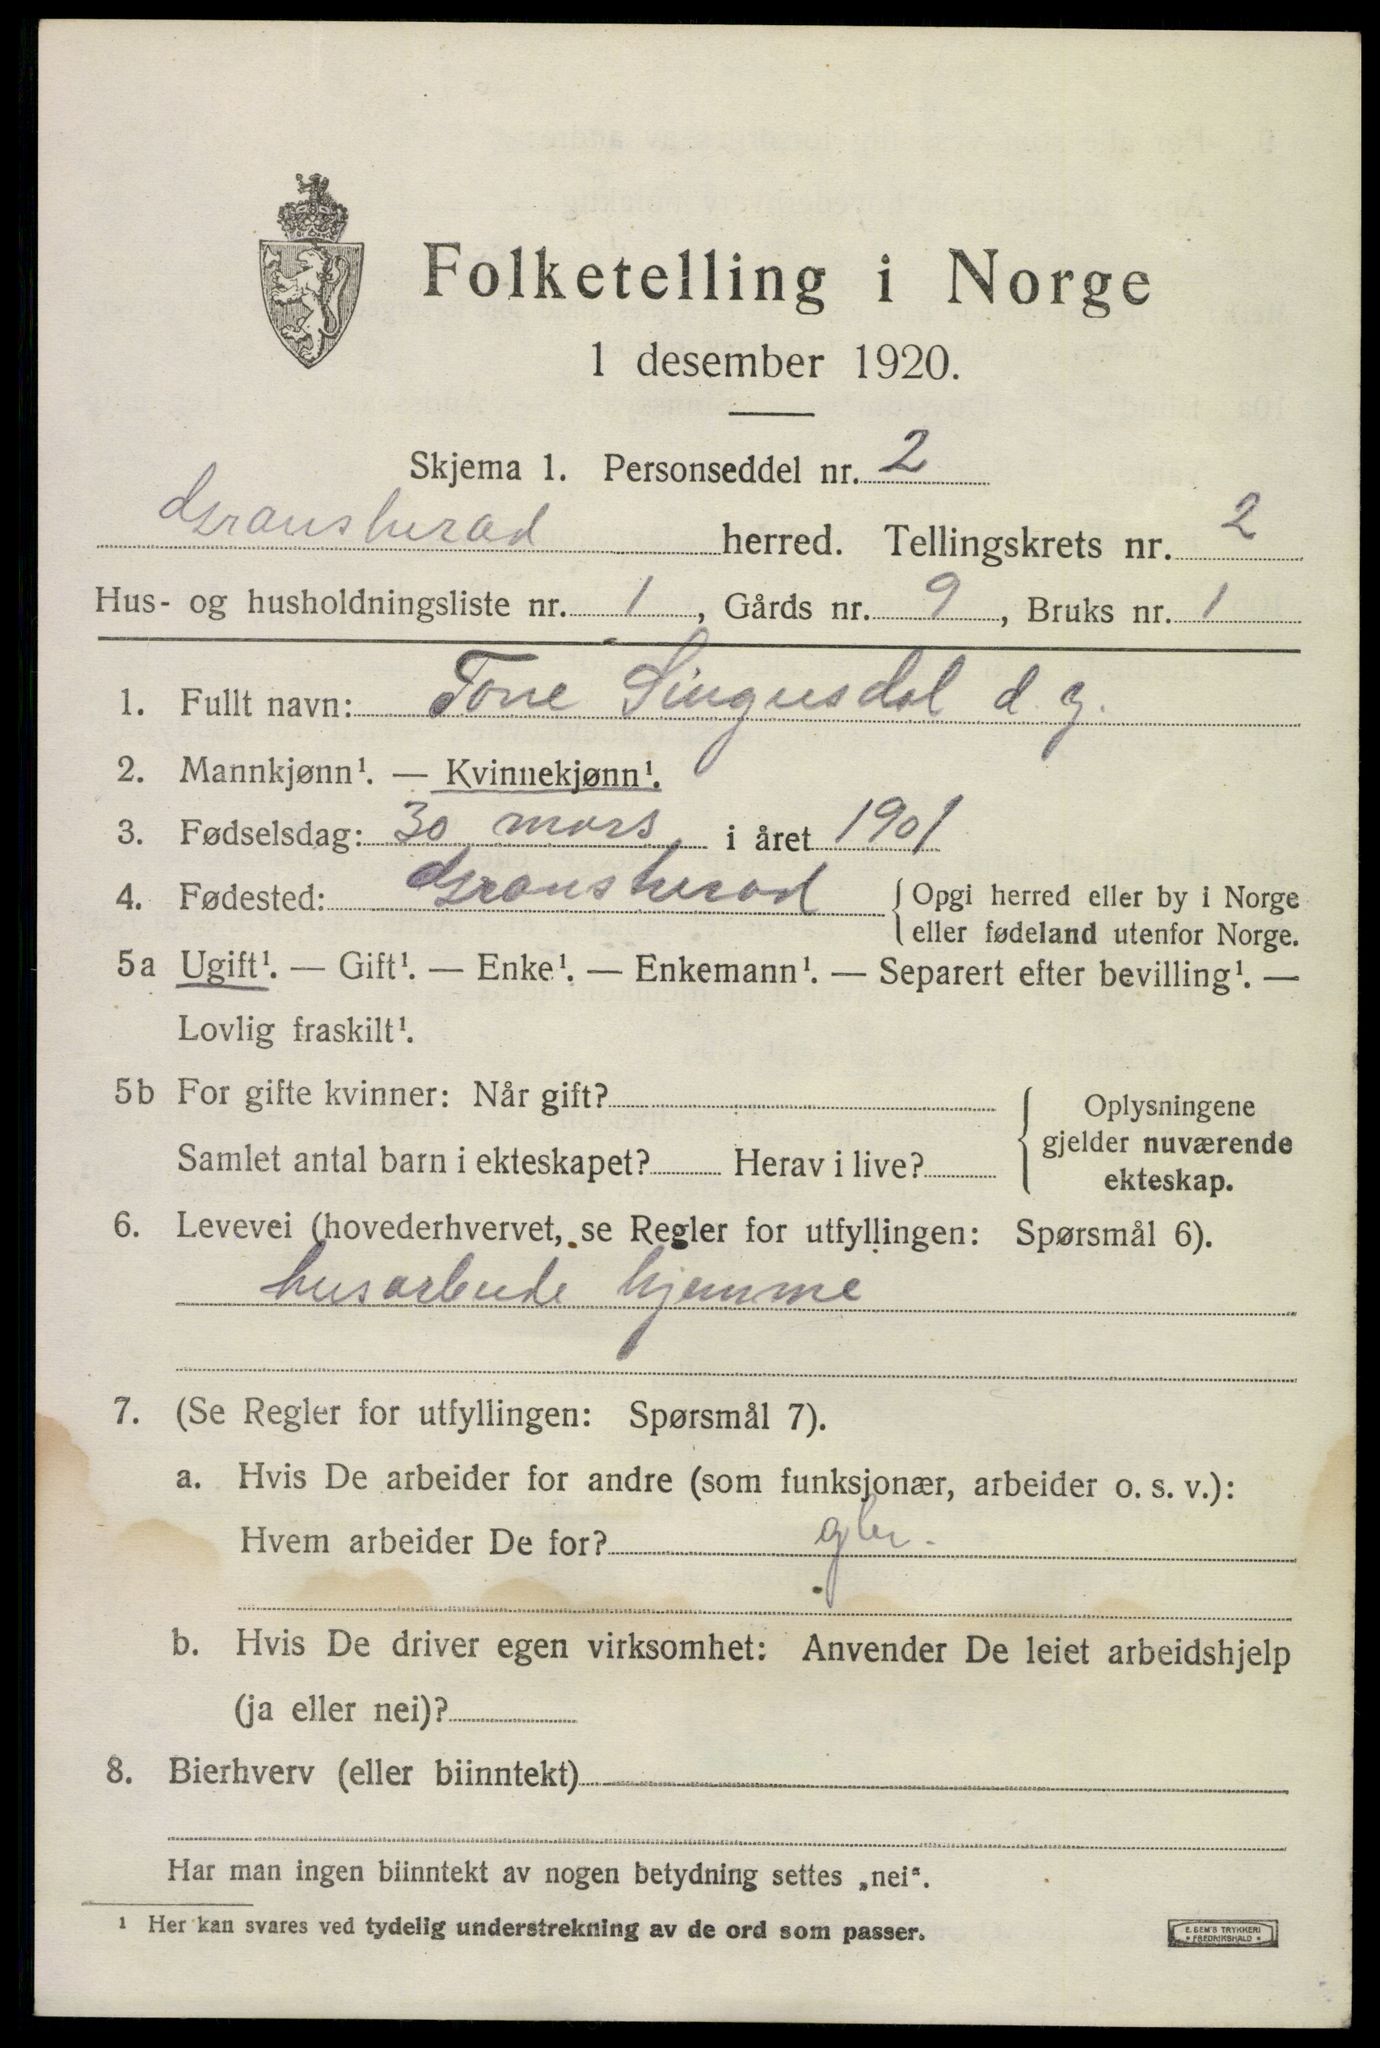 Folketelling i Norge
1 desember 1920.
Skjema 1. Personseddel nr. 2
Gransherad herred. Tellingskrets nr. 2
Hus- og husholdningsliste nr. 1, Gårds nr. 9, Bruks nr. 1
1. Fullt navn: Tone Lingusdal d. y.
2. Mannkjønn¹. — Kvinnekjønn¹.
3. Fødselsdag: 30 mars i året 1901
4. Fødested: Gransherad { Opgi herred eller by i Norge
eller fødeland utenfor Norge.
5a Ugift¹. — Gift¹. — Enke¹. — Enkemann¹. — Separert efter bevilling¹. —
Lovlig fraskilt¹.
5b For gifte kvinner: Når gift?
Samlet antal barn i ekteskapet? Herav i live?
{ Oplysningene
gjelder nuværende
ekteskap.
6. Levevei (hovederhvervet, se Regler for utfyllingen: Spørsmål 6).
husarbeide hjemme
7. (Se Regler for utfyllingen: Spørsmål 7).
a. Hvis De arbeider for andre (som funksjonær, arbeider o. s. v.):
Hvem arbeider De for?
b. Hvis De driver egen virksomhet: Anvender De leiet arbeidshjelp
(ja eller nei)?
8. Bierhverv (eller biinntekt)
Har man ingen biinntekt av nogen betydning settes „nei“.
¹ Her kan svares ved tydelig understrekning av de ord som passer.
E. SEM'S TRYKKERI
• FREDRIKSHALD •